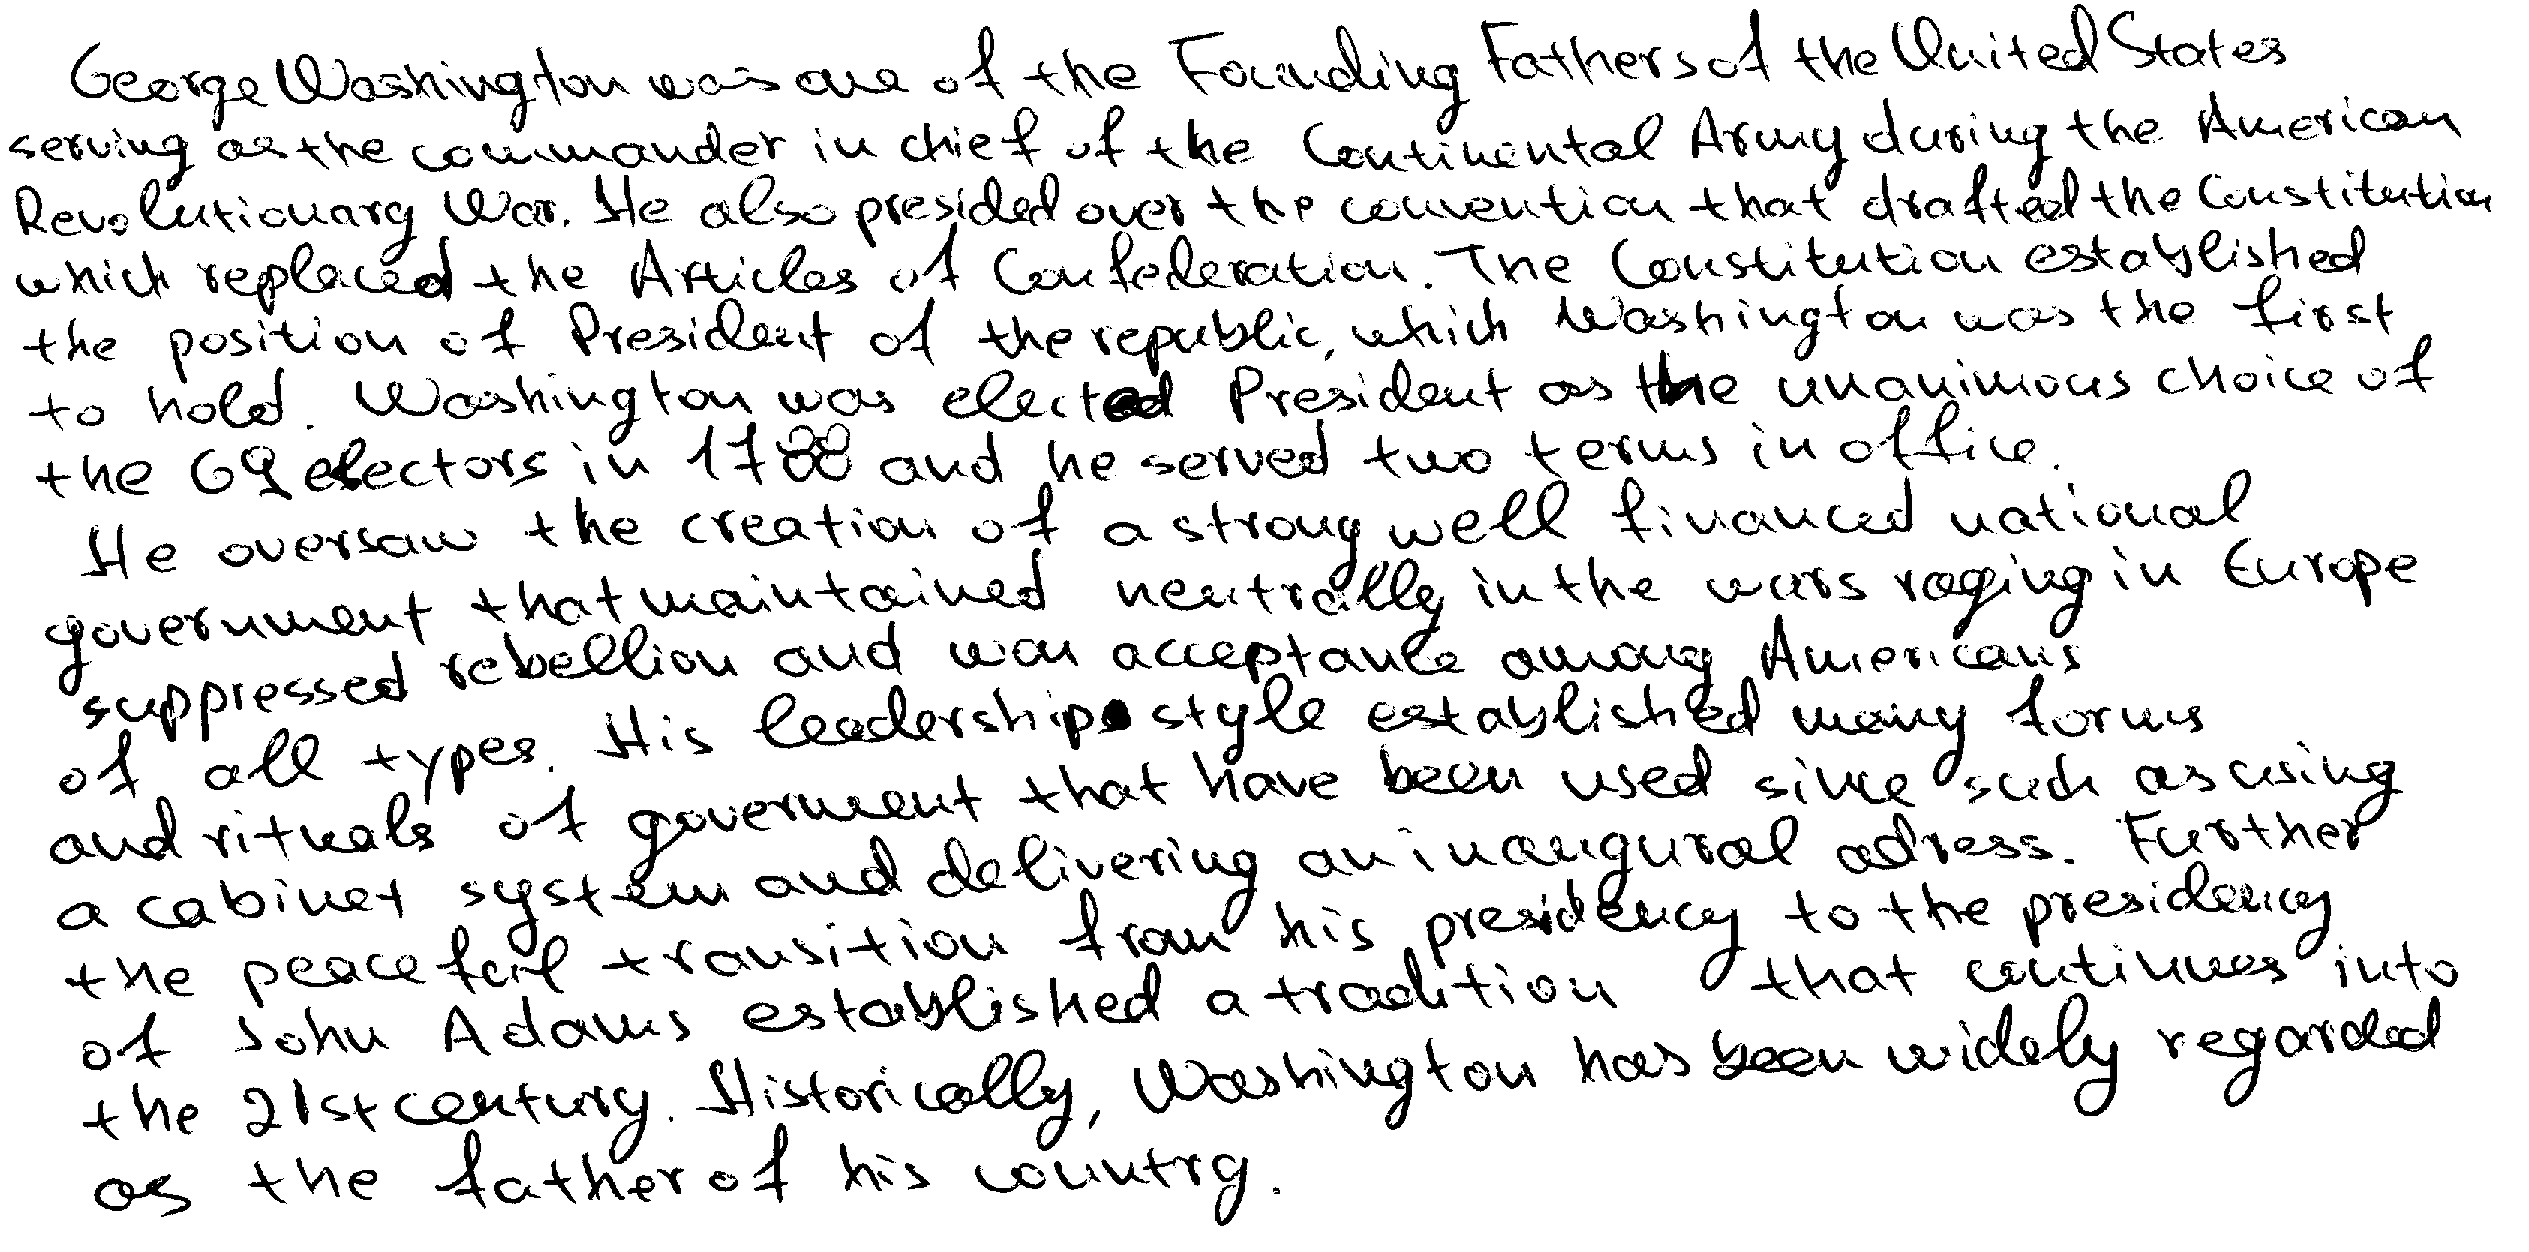 George Washington was one of the Founding Fathers of the United States
serving as the commander in chief of the Continental Army during the American
Revolutionary War. He also presided over the convention that drafted the Constitution
which replaced the Articles of Confederation. The Constitution established
the position of President of the republic, which Washington was the first
to hold. Washington was elected President as the unanimous choice of
the 69 electors in 1788 and he served two terms in office.
He oversaw the creation of a strong well financed national
government that maintained neutrally in the wars raging in Europe
suppressed rebellion and won acceptance among Americans
of all types. His leadership style established many forms
and rituals of goverment that have been used since such as using
a cabinet system and delivering an inaugural adress. Further
the peaceful transition from his presidency to the presidency
of John Adams established a tradition that continues into
the 21st century. Historically, Washington has been widely regarded
as the father of his country.